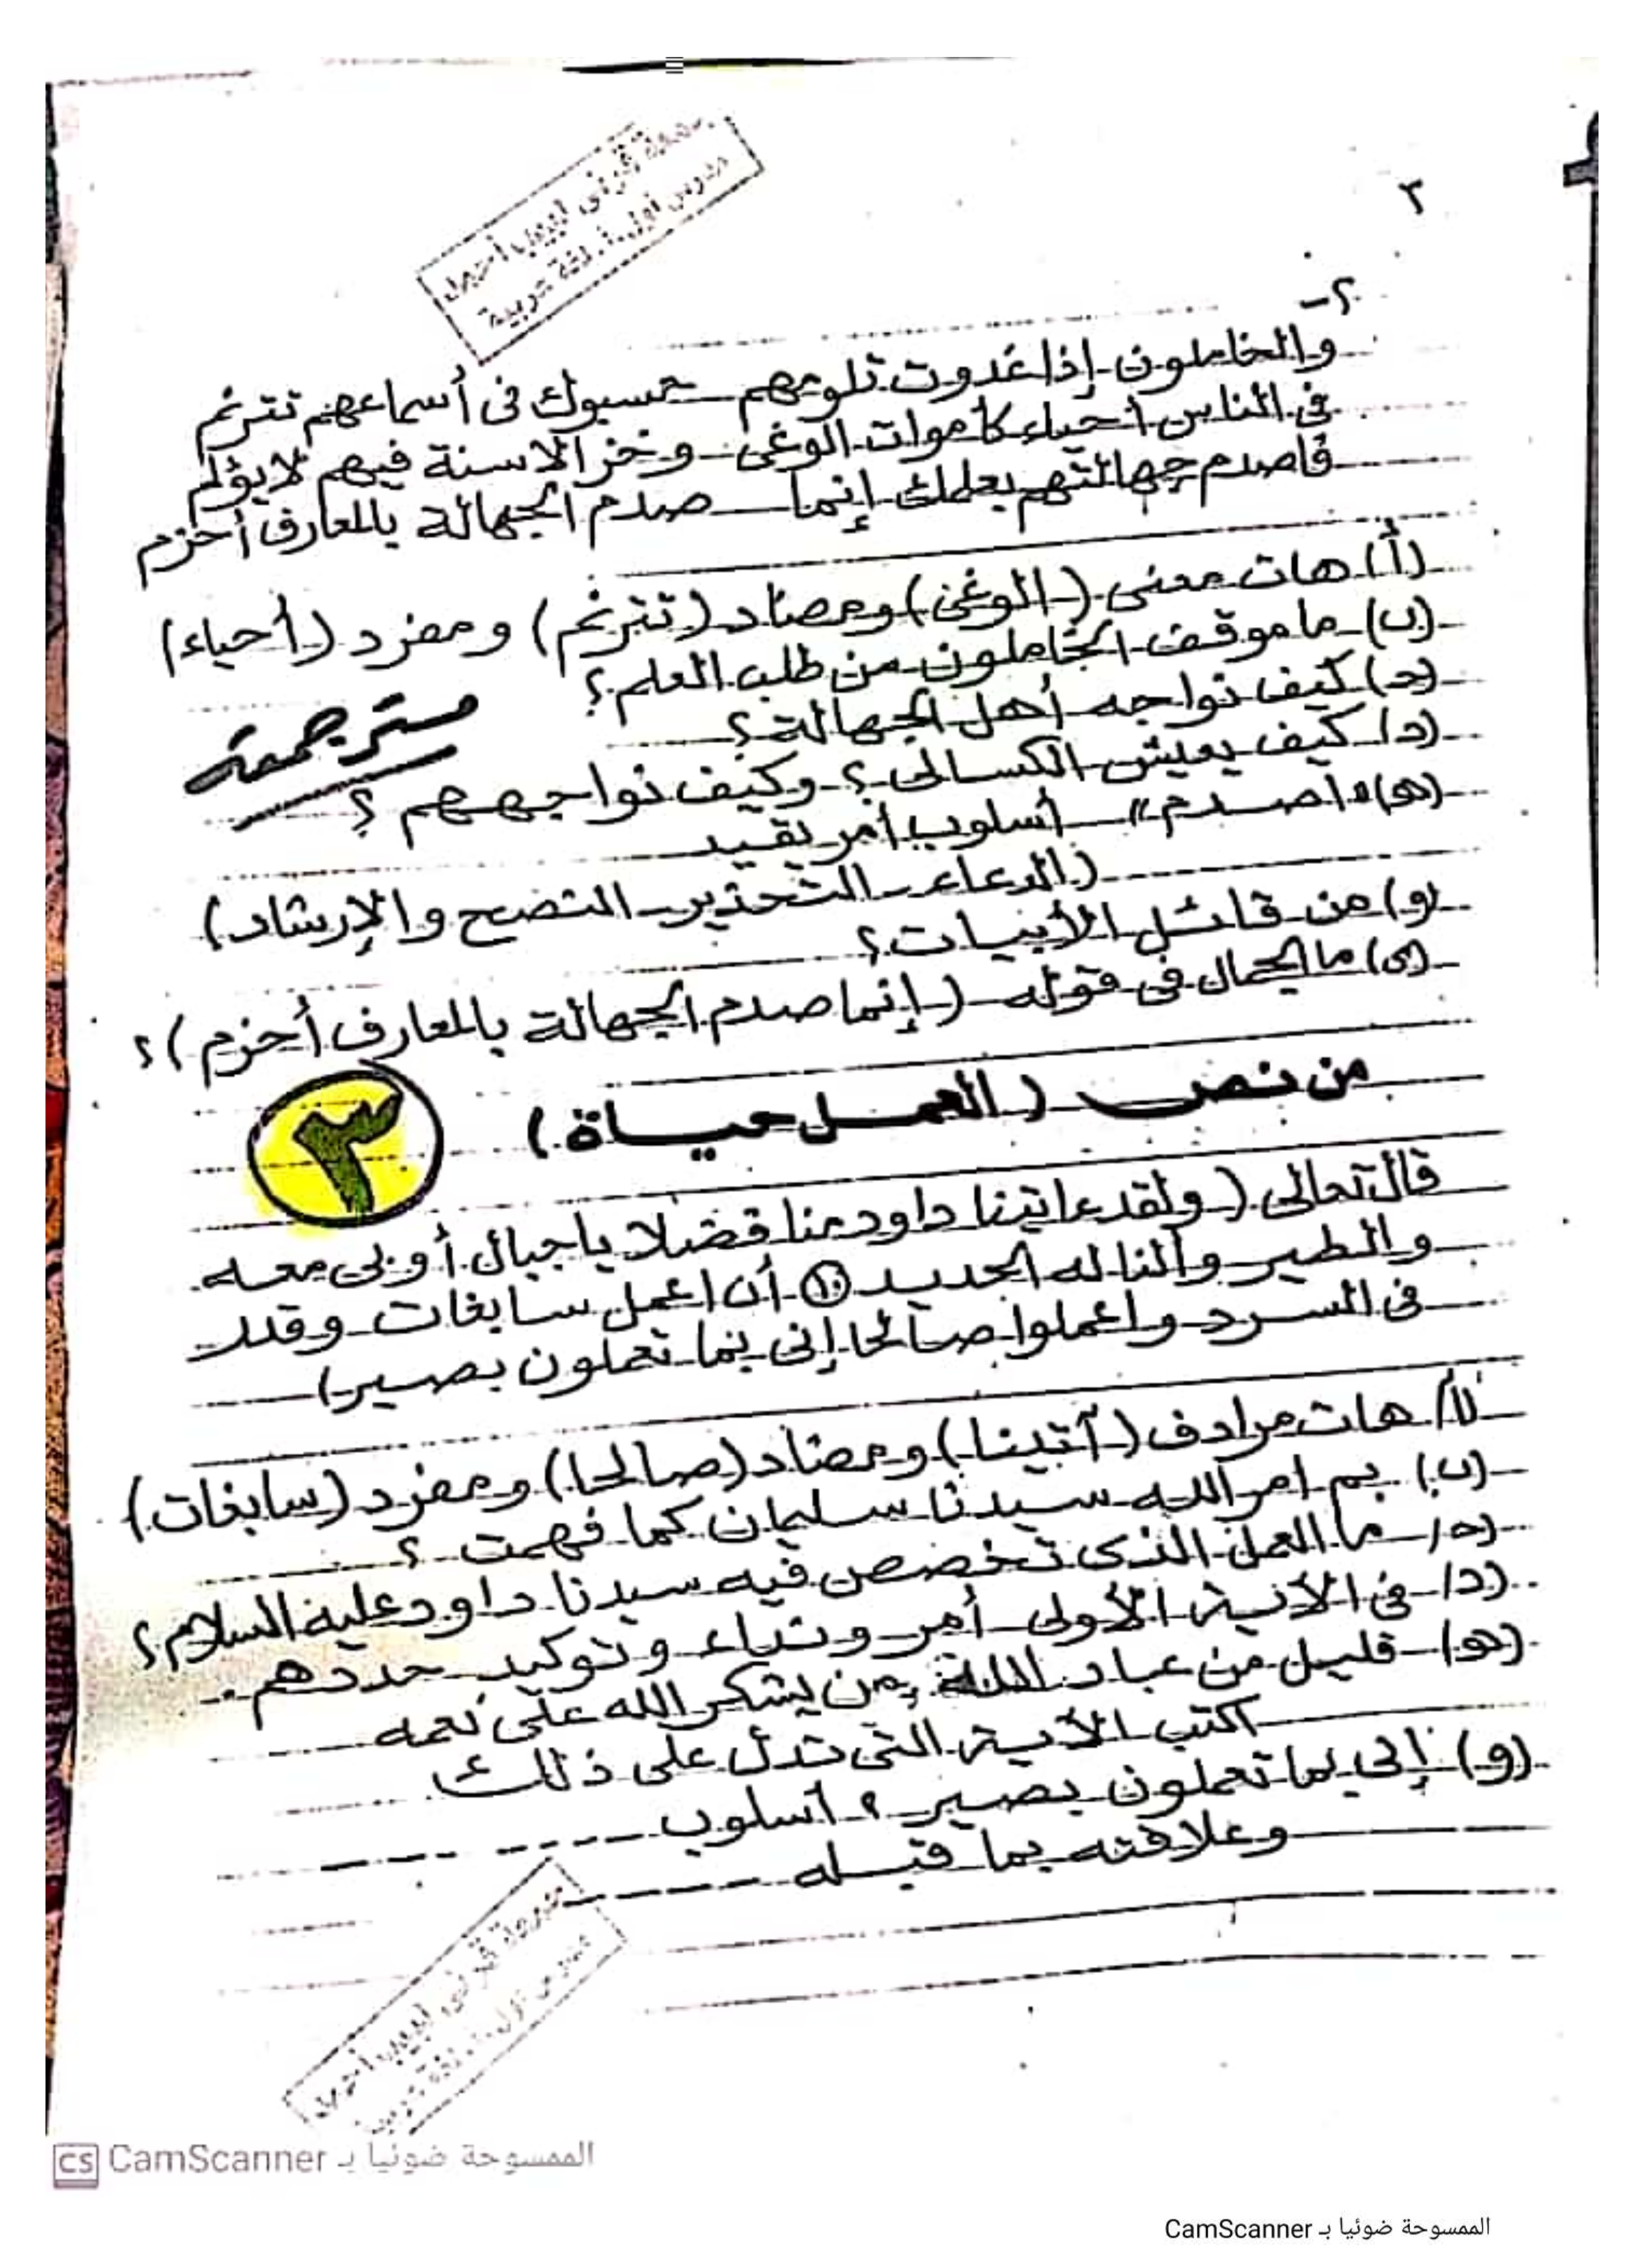 ٣
٢-
والخاملون إذا غدوت تلومهم حسبوك فى أسماعهم تترنم
فى الناس أحياء كأموات الوغى وخز الاسنة فيهم لا يؤلم
فاصدم جهالتهم بعلمك إنما صدم الجهالة بالمعارف أحزم
(أ) هات معنى (الوغى) ومضاد (تترنم) ومفرد (أحياء)
(ب) ما موقف الخاملون من طلب العلم؟
(حـ) كيف نواجه أهل الجهالة؟
مستر جمعه
(د) كيف يعيش الكسالى؟ وكيف نواجههم؟
(هـ) "اصدم" أسلوب أمر يفيد
(الدعاء - التحذير - النصح والإرشاد)
(و) من قائل الأبيات؟
(ى) ما الجمال فى قوله (إنما صدم الجهالة بالمعارف أحزم)؟
من نص (العمل حياة)
٣
قال تعالى (ولقد ءاتينا داود منا فضلا يا جبال أوبى معه
والطير وألنا له الحديد ١٠ أن اعمل سابغات وقدر
فى السرد واعملوا صالحا إنى بما تعملون بصير)
(أ) هات مرادف (آتينا) ومضاد (صالحا) ومفرد (سابغات)
(ب) بم امر الله سيدنا سليمان كما فهمت؟
(حـ) ما العمل الذى تخصص فيه سيدنا داود عليه السلام؟
(د) فى الآية الأولى أمر ونداء وتوكيد حددهم..
(هـ) قليل من عباد الله من يشكر الله على نعمه
اكتب الآية التى تدل على ذلك
(و) إنى بما تعملون بصير؟ أسلوب ----
وعلاقته بما قبله ----
الممسوحة ضوئيا بـ CamScanner
الممسوحة ضوئيا بـ CamScanner